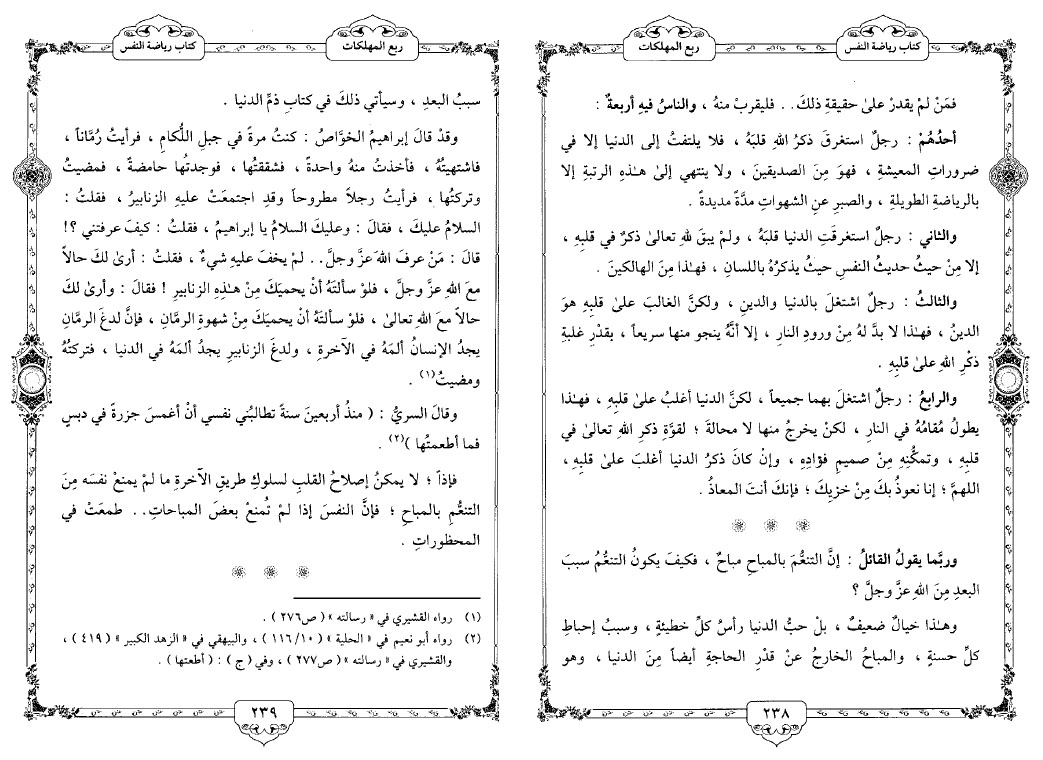 كتاب رياضة النفس
ربع المهلكات
فمَنْ لمْ يقدرْ علىٰ حقيقةِ ذلكَ . . فليقربْ منهُ ، والناسُ فيهِ أربعةٌ :
أحدُهُمْ : رجلٌ استغرقَ ذكرُ اللهِ قلبَهُ ، فلا يلتفتُ إلى الدنيا إلا في
ضروراتِ المعيشةِ ، فهوَ مِنَ الصديقينَ ، ولا ينتهي إلىٰ هـٰذهِ الرتبةِ إلا
بالرياضةِ الطويلةِ ، والصبرِ عنِ الشهواتِ مدَّةً مديدةً .
والثاني : رجلٌ استغرقَتِ الدنيا قلبَهُ ، ولمْ يبقَ للهِ تعالىٰ ذكرٌ في قلبِهِ ،
إلا مِنْ حيثُ حديثُ النفسِ حيثُ يذكرُهُ باللسانِ ، فهـٰذا مِنَ الهالكينَ .
والثالثُ : رجلٌ اشتغلَ بالدنيا والدينِ ، ولكنَّ الغالبَ علىٰ قلبِهِ هوَ
الدينُ ، فهـٰذا لا بدَّ لهُ مِنْ ورودِ النارِ ، إلا أنَّهُ ينجو منها سريعاً ، بقدْرِ غلبةِ
ذكْرِ اللهِ علىٰ قلبِهِ .
والرابعُ : رجلٌ اشتغلَ بهما جميعاً ، لكنَّ الدنيا أغلبُ علىٰ قلبِهِ ، فهـٰذا
يطولُ مُقامُهُ في النارِ ، لكنْ يخرجُ منها لا محالةَ ؛ لقوَّةِ ذكرِ اللهِ تعالىٰ في
قلبِهِ ، وتمكُّنِهِ مِنْ صميمِ فؤادِهِ ، وإنْ كانَ ذكرُ الدنيا أغلبَ علىٰ قلبِهِ ،
اللهمَّ ؛ إنا نعوذُ بكَ مِنْ خزيِكَ ؛ فإنكَ أنتَ المعاذُ .
وربَّما يقولُ القائلُ : إنَّ التنعُّمَ بالمباحِ مباحٌ ، فكيفَ يكونُ التنعُّمُ سببَ
البعدِ مِنَ اللهِ عزَّ وجلَّ ؟
وهـٰذا خيالٌ ضعيفٌ ، بلْ حبُّ الدنيا رأسُ كلِّ خطيئةٍ ، وسببُ إحباطِ
كلِّ حسنةٍ ، والمباحُ الخارجُ عنْ قدْرِ الحاجةِ أيضاً مِنَ الدنيا ، وهو
٢٣٨
ربع المهلكات
كتاب رياضة النفس
سببُ البعدِ ، وسيأتي ذلكَ في كتابِ ذمِّ الدنيا .
وقدْ قالَ إبراهيمُ الخوَّاصُ : كنتُ مرةً في جبلِ اللُّكامِ ، فرأيتُ رُمَّاناً ،
فاشتهيتُهُ ، فأخذتُ منهُ واحدةً ، فشققتُها ، فوجدتُها حامضةً ، فمضيتُ
وتركتُها ، فرأيتُ رجلاً مطروحاً وقدِ اجتمعَتْ عليهِ الزنابيرُ ، فقلتُ :
السلامُ عليكَ ، فقالَ : وعليكَ السلامُ يا إبراهيمُ ، فقلتُ : كيفَ عرفتني ؟!
قالَ : مَنْ عرفَ اللهَ عزَّ وجلَّ . . لمْ يخفَ عليهِ شيءٌ ، فقلتُ : أرىٰ لكَ حالاً
معَ اللهِ عزَّ وجلَّ ، فلوْ سألتَهُ أنْ يحميَكَ مِنْ هـٰذهِ الزنابيرِ ! فقالَ : وأرىٰ لكَ
حالاً معَ اللهِ تعالىٰ ، فلوْ سألتَهُ أنْ يحميَكَ مِنْ شهوةِ الرمَّانِ ، فإنَّ لدغَ الرمَّانِ
يجدُ الإنسانُ ألمَهُ في الآخرةِ ، ولدغَ الزنابيرِ يجدُ ألمَهُ في الدنيا ، فتركتُهُ
ومضيتُ(١) .
وقالَ السريُّ : ( منذُ أربعينَ سنةً تطالبُني نفسي أنْ أغمسَ جزرةً في دبسٍ
فما أطعمتُها )(٢) .
فإذاً ؛ لا يمكنُ إصلاحُ القلبِ لسلوكِ طريقِ الآخرةِ ما لمْ يمنعْ نفسَه مِنَ
التنعُّمِ بالمباحِ ؛ فإنَّ النفسَ إذا لمْ تُمنعْ بعضَ المباحاتِ . . طمعَتْ في
المحظوراتِ .
(١) رواه القشيري في « رسالته » ( ص٢٧٦ ) .
(٢) رواه أبو نعيم في « الحلية » ( ١١٦/١٠ ) ، والبيهقي في « الزهد الكبير » ( ٤١٩ ) ،
والقشيري في « رسالته » ( ص٢٧٧ ) ، وفي ( ج ) : ( أطعتها ) .
٢٣٩